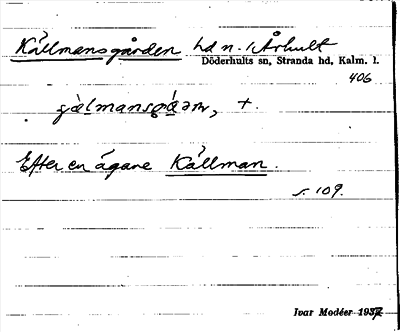 Källmansgården hd n. 1 Århult
Döderhults sn, Stranda hd, Kalm. l.
406
+.
Efter en ägare Källman.
s. 109.
Ivar Modéer 1937